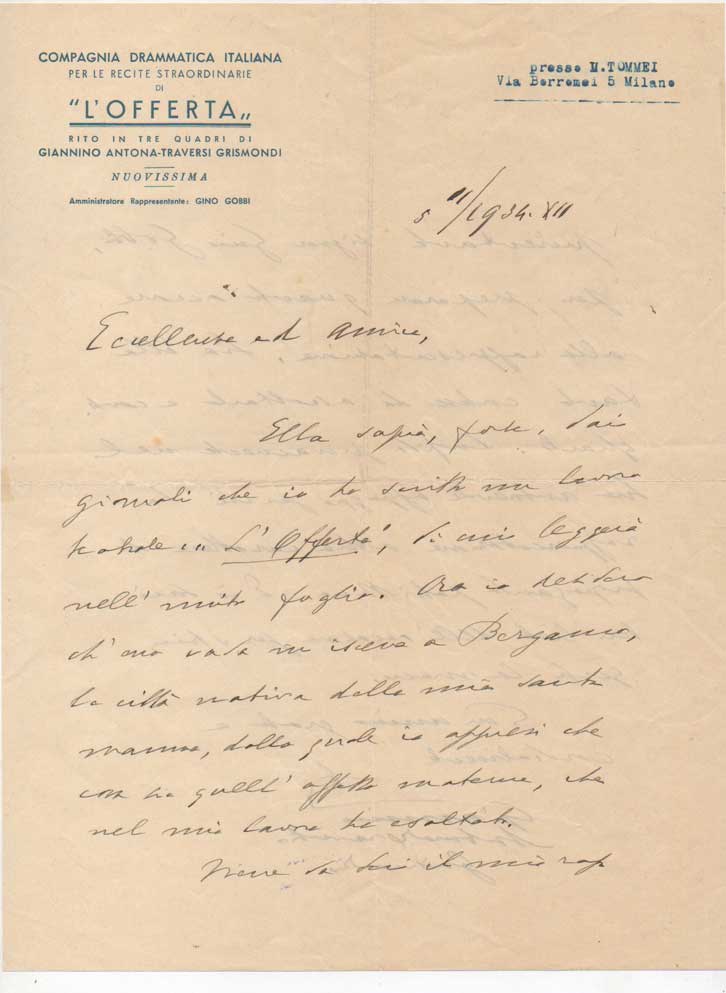 COMPAGNIA DRAMMATICA ITALIANA
PER LE RECITE STRAORDINARIE
DI
"L'OFFERTA„
RITO IN TRE QUADRI DI
GIANNINO ANTONA-TRAVERSI GRISMONDI
NUOVISSIMA
Amministratore Rappresentante: GINO GOBBI
presso M.TOMMEI
Via Borromei 5 Milano
5 11/1934.XII
Eccellenza ed amico,
Ella saprà, forse, dai
giornali che io ho scritto un lavoro
teatrale: „L'Offerta", di cui leggerà
nell' unito foglio. Ora io desidero
ch' esso vada in iscena a Bergamo,
la città nativa della mia santa
mamma, dalla quale io appresi che
cosa sia quell' affetto materno, che
nel mio lavoro ho esaltato.
Viene da Lei il mio rap